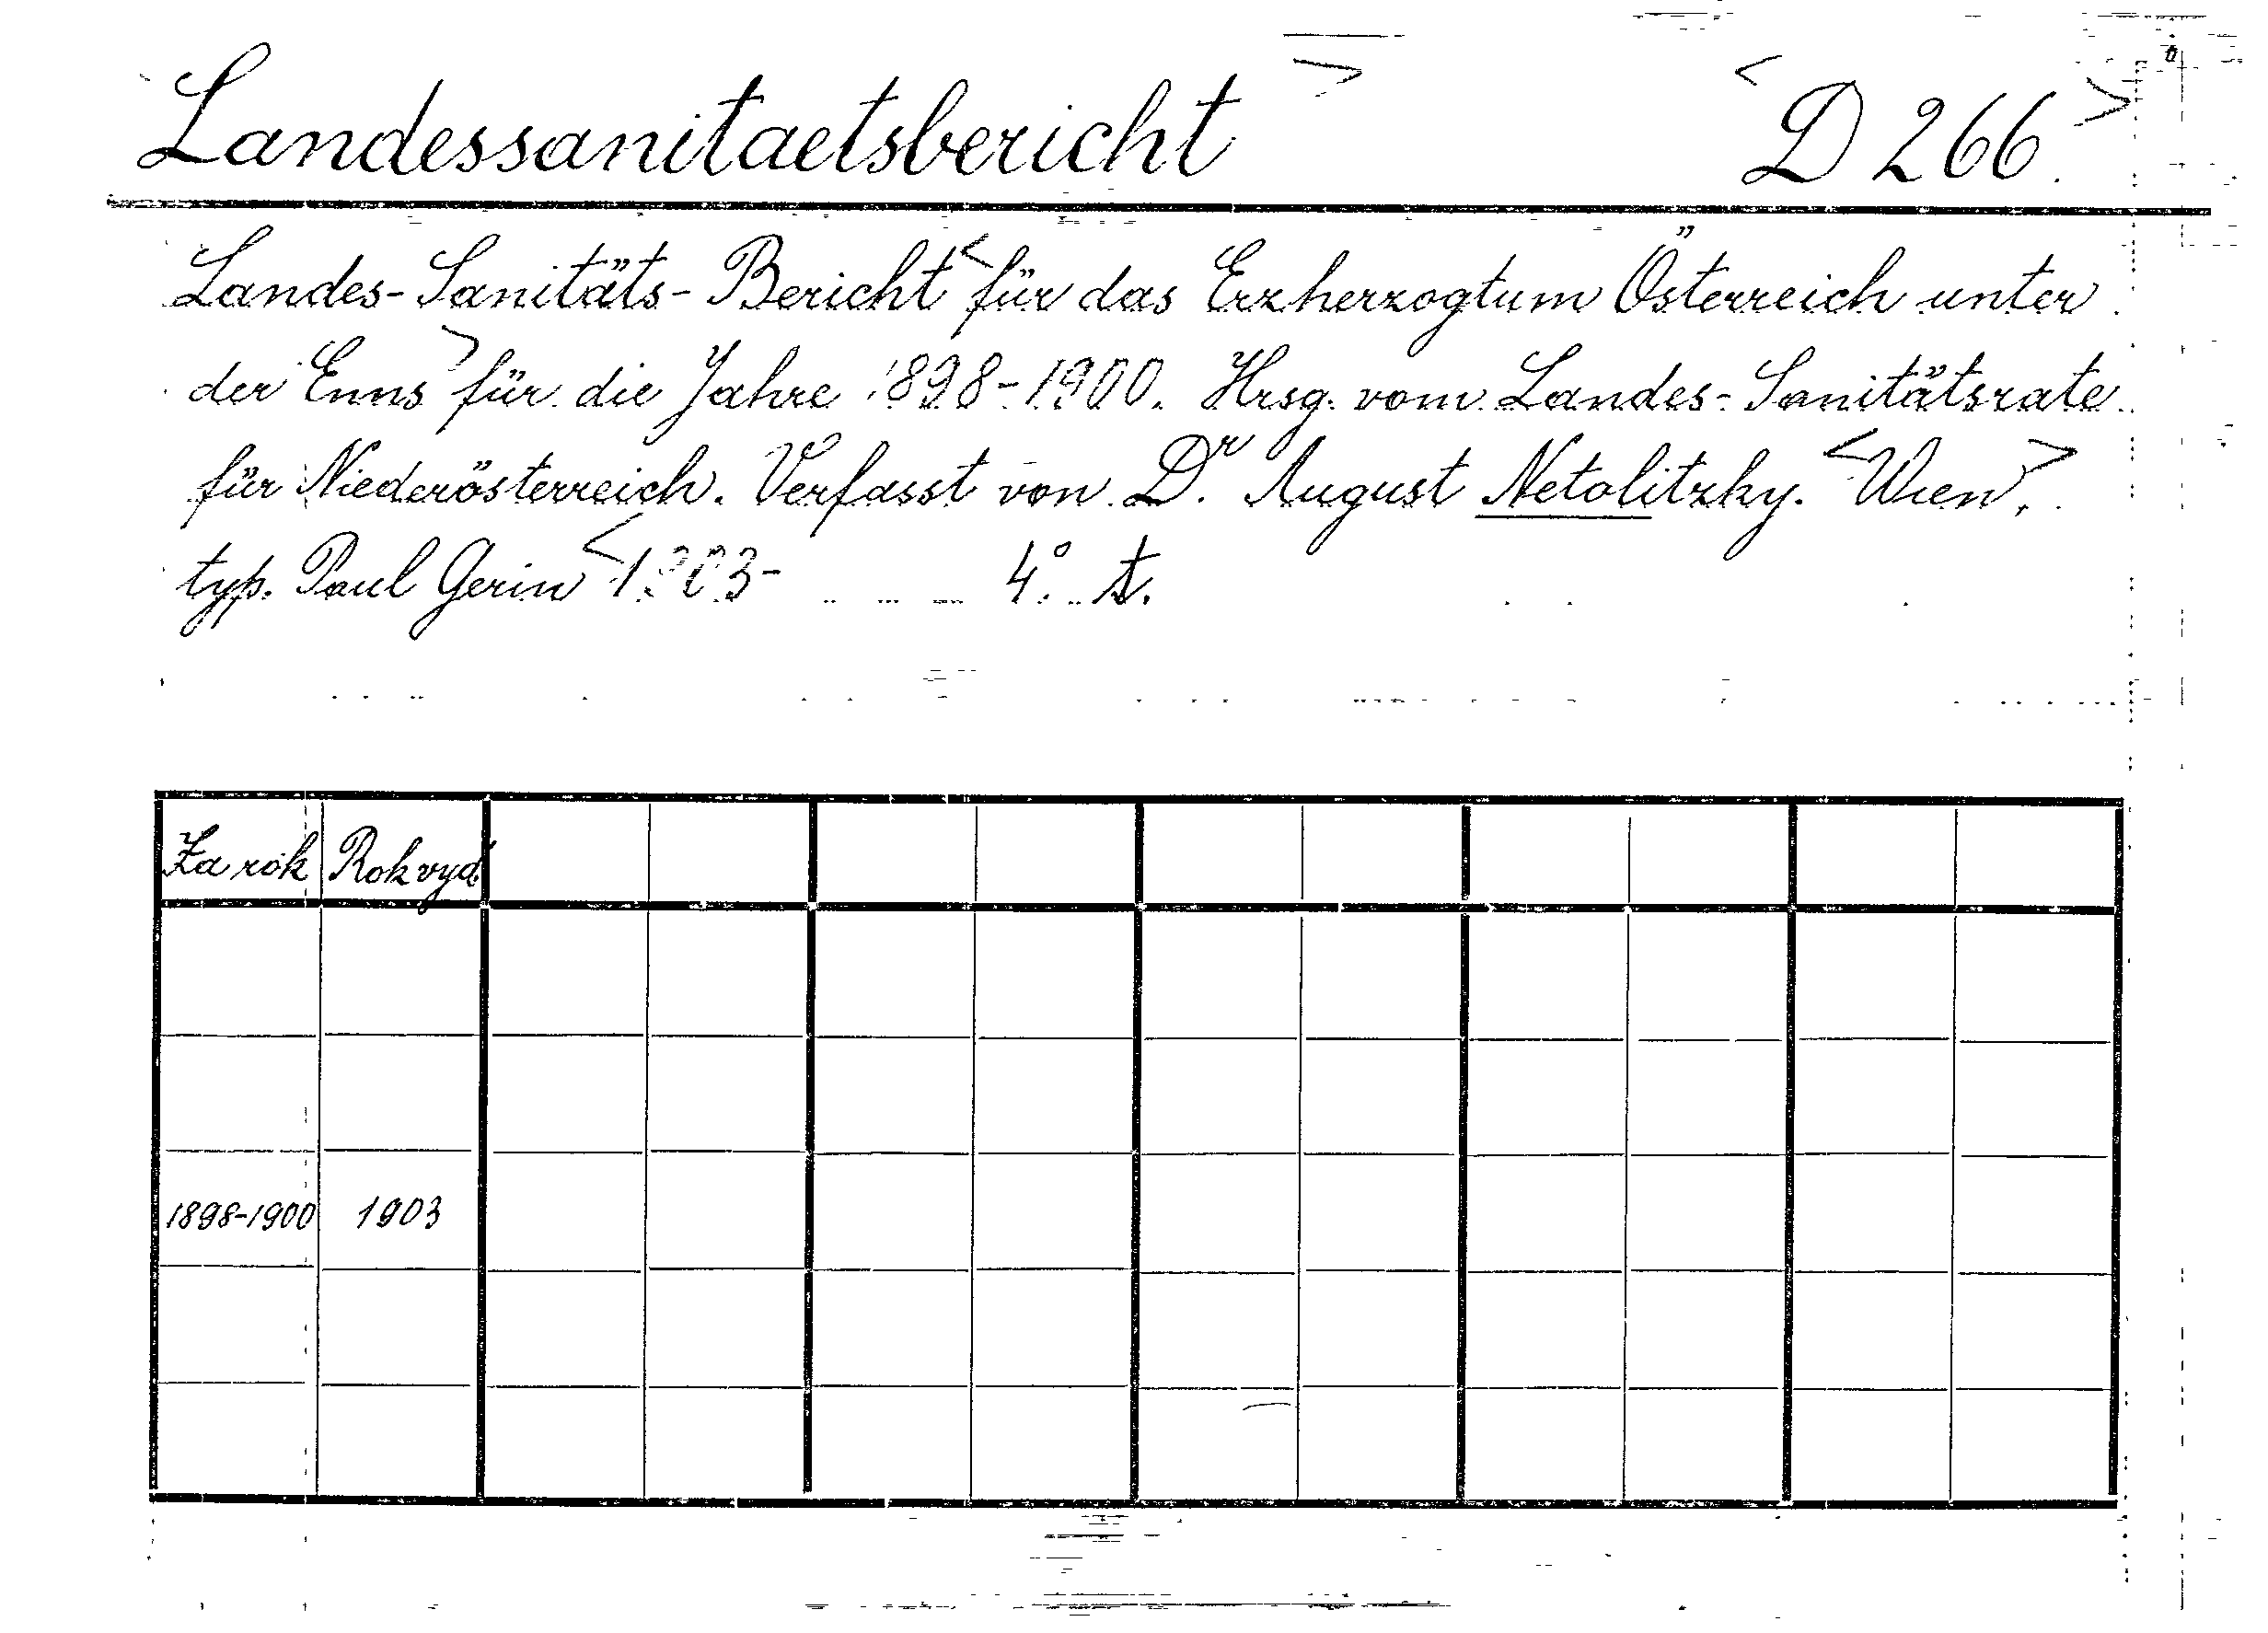 Landessanitaetsbericht > < D 266 >
Landes-Sanitäts-Bericht < für das Erzherzogtum Österreich unter
der Enns > für die Jahre 1898-1900. Hrsg. vom Landes-Sanitätsrate
für Niederösterreich. Verfasst von Dr. August Netolitzky. < Wien, >
typ. Paul Gerin < 1903- 4° t.
Za rok Rok vyd.
1898-1900 1903